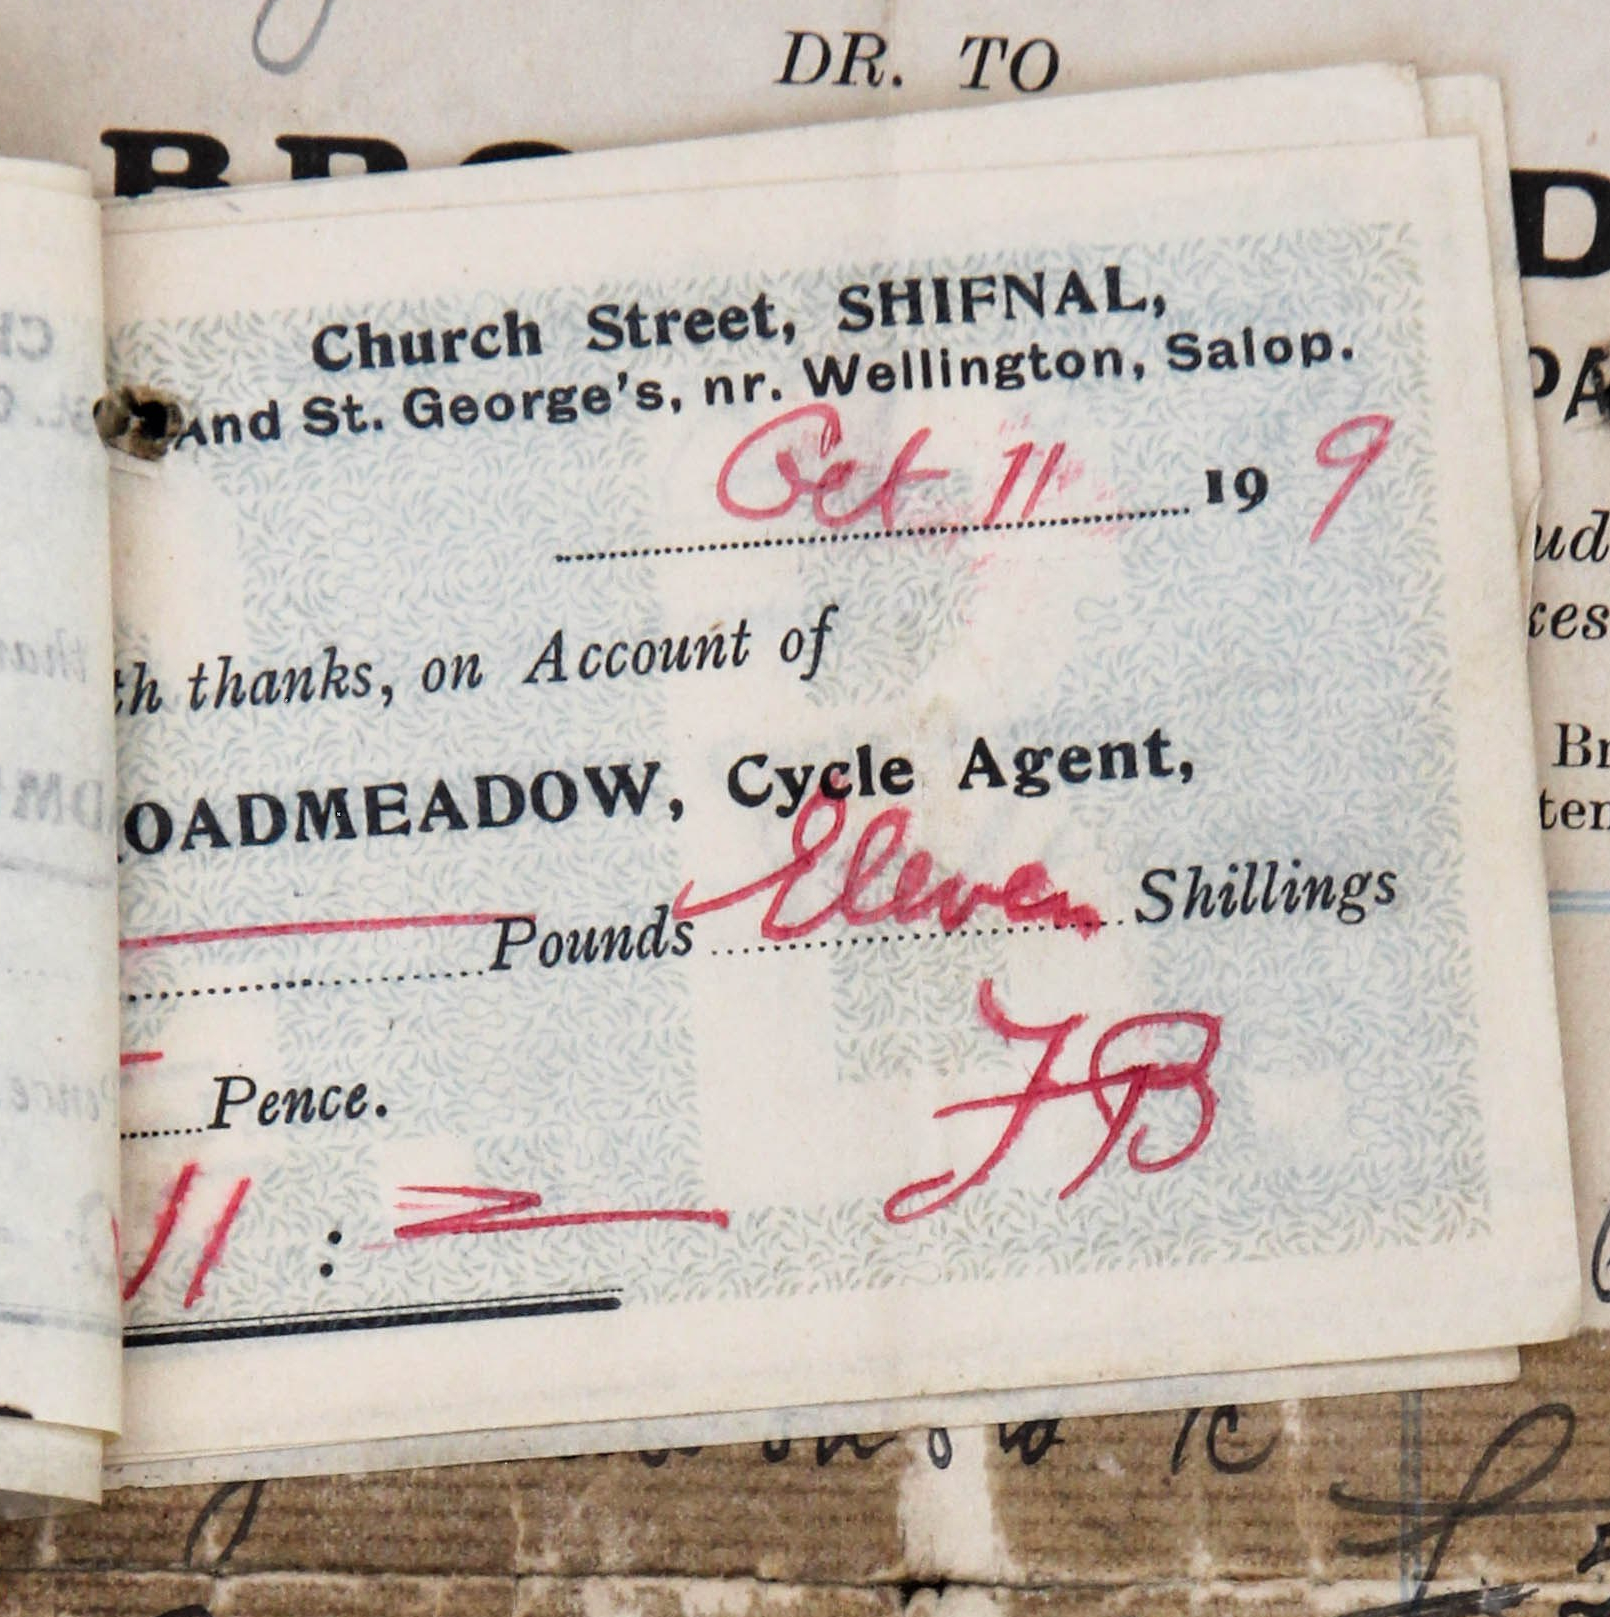 DR. TO
Church Street, SHIFNAL,
And St. George's, nr. Wellington, Salop.
Oct 11 19 9
th thanks, on Account of
OADMEADOW, Cycle Agent,
Pounds Eleven Shillings
Pence.
11 : =
FB